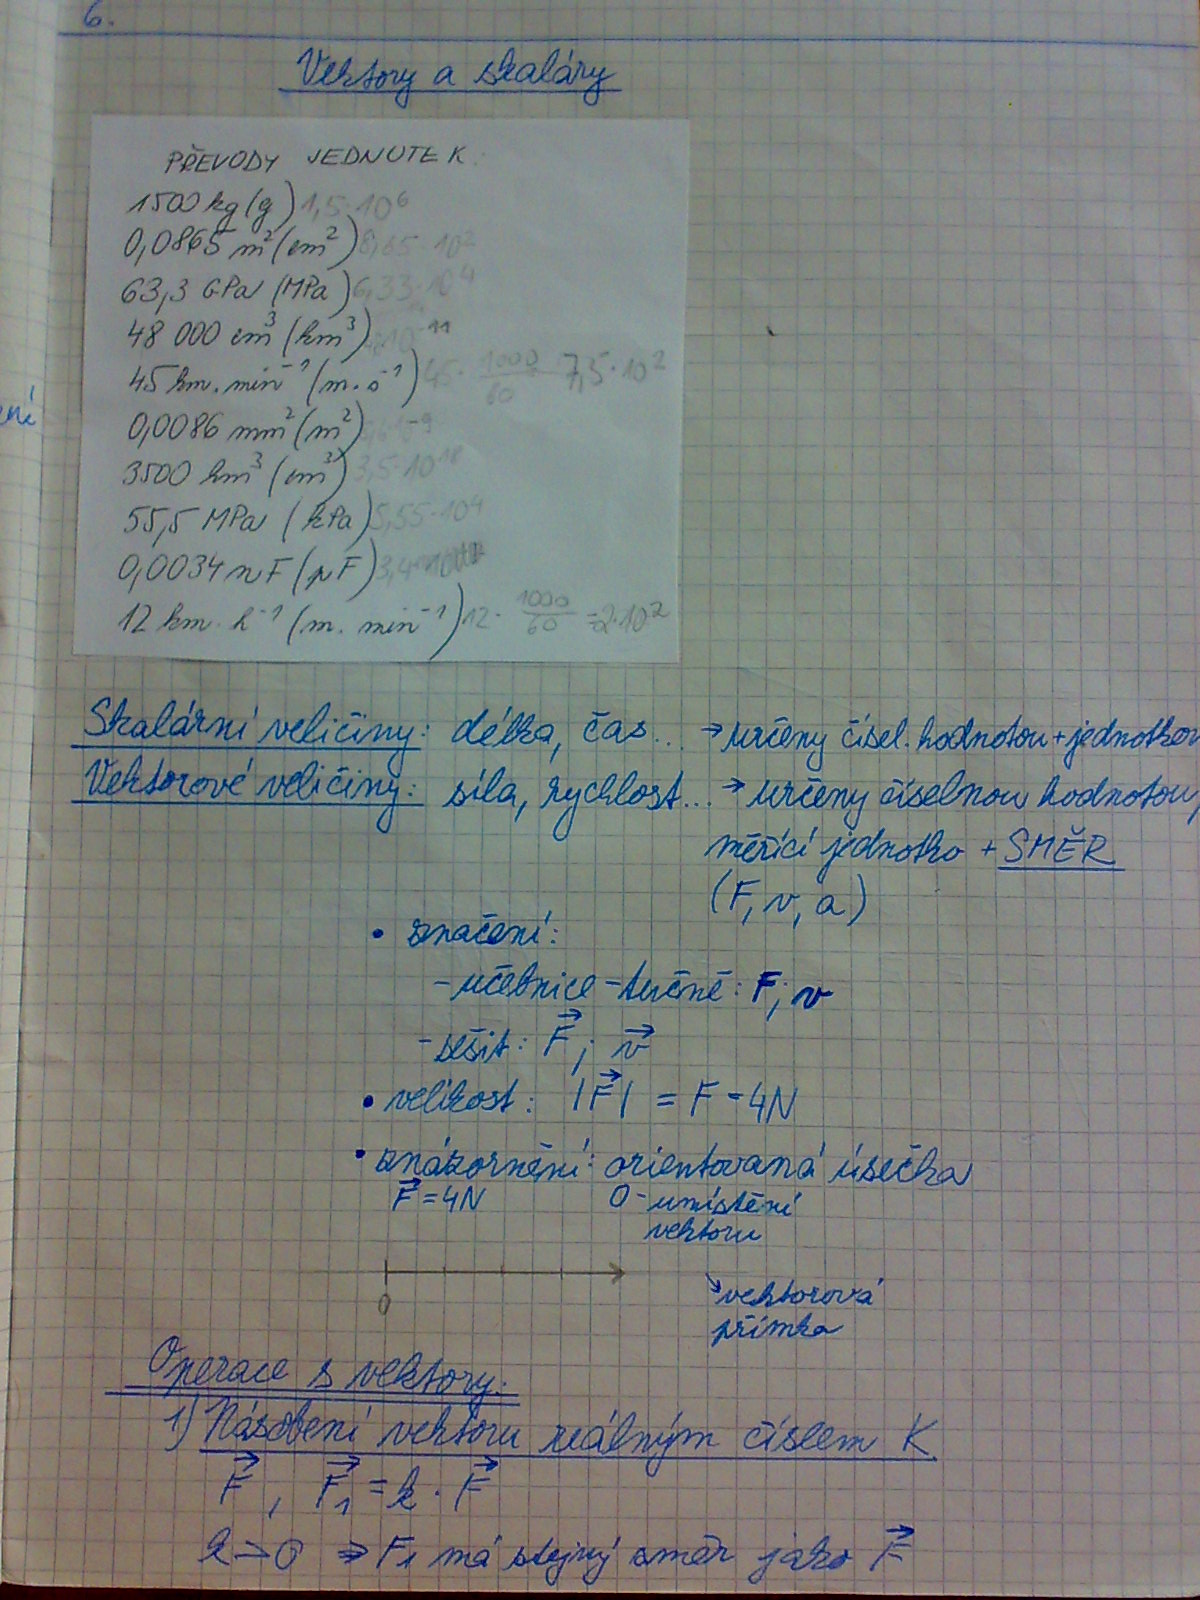 6.
Vektory a skaláry
PŘEVODY JEDNOTEK
1500 kg (g) 1,5·10⁶
0,0865 m² (cm²) 8,65·10²
63,3 GPa (MPa) 6,33·10⁴
48 000 cm³ (km³) 10⁻¹¹
45 km·min⁻¹ (m·s⁻¹) 45· 1000/60 = 7,5·10²
0,0086 mm² (m²) 10⁻⁹
3500 km³ (cm³) 3,5·10¹⁸
55,5 MPa (kPa) 5,55·10⁴
0,0034 nF (pF) 3,4
12 km·h⁻¹ (m·min⁻¹) 12· 1000/60 = 2·10²
ení
Skalární veličiny: délka, čas... → určeny čísel. hodnotou + jednotkou
Vektorové veličiny: síla, rychlost... → určeny číselnou hodnotou,
měřící jednotko + SMĚR
(F, v, a)
• značení:
- učebnice - tučně: F; v
- sešit: F⃗; v⃗
• velikost: |F⃗| = F = 4N
• znázornění: orientovaná úsečka
F⃗ = 4N O - umístění
vektoru
0
↘ vektorová
přímka
Operace s vektory:
1) Násobení vektoru reálným číslem K
F⃗, F⃗₁ = k · F⃗
k > 0 ⇒ F₁ má stejný směr jako F⃗